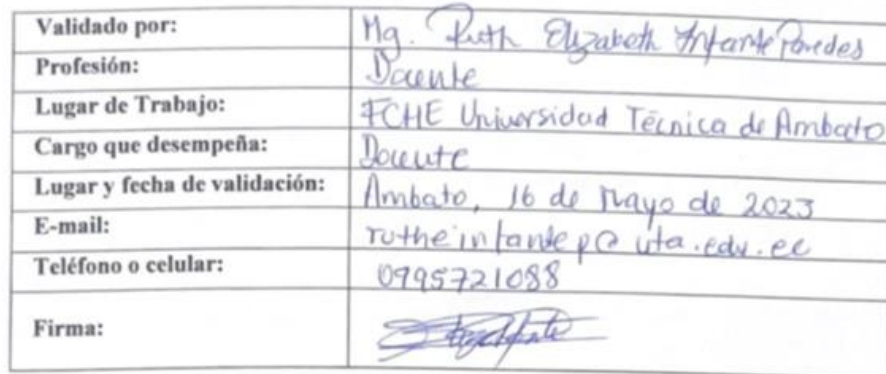 Validado por: Mg. Ruth Elizabeth Infante Paredes
Profesión: Docente
Lugar de Trabajo: FCHE Universidad Técnica de Ambato
Cargo que desempeña: Docente
Lugar y fecha de validación: Ambato, 16 de Mayo de 2023
E-mail: rutheinfantep@uta.edu.ec
Teléfono o celular: 0995721088
Firma: